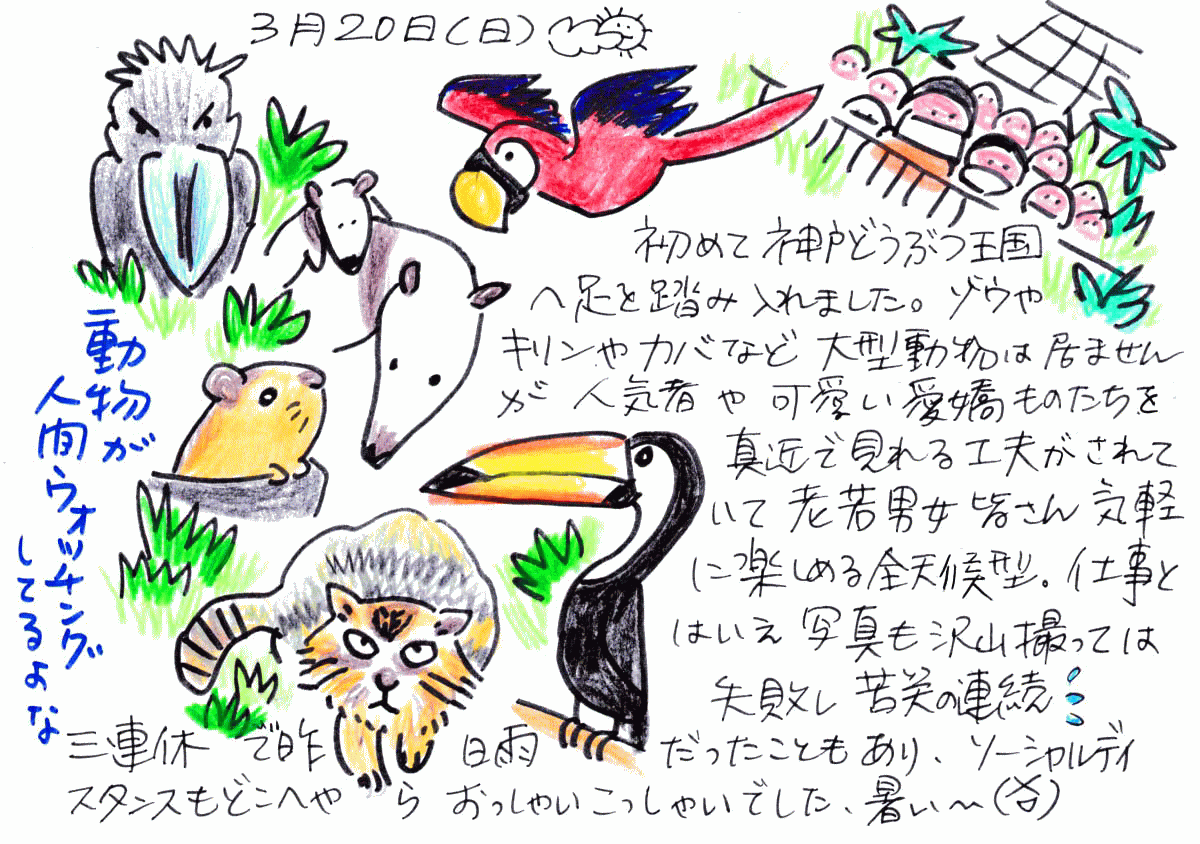 3月20日(日)
初めて神戸どうぶつ王国
へ足を踏み入れました。ゾウや
キリンやカバなど大型動物は居ません
が人気者や可愛い愛嬌ものたちを
真近で見れる工夫がされて
いて老若男女皆さん気軽
に楽しめる全天候型。仕事と
はいえ写真も沢山撮っては
失敗し苦笑の連続
三連休で昨日雨だったこともあり、ソーシャルディ
スタンスもどこへやらおっしゃいこっしゃいでした、暑い〜(答)
動物が
人間ウォッチング
してるよな